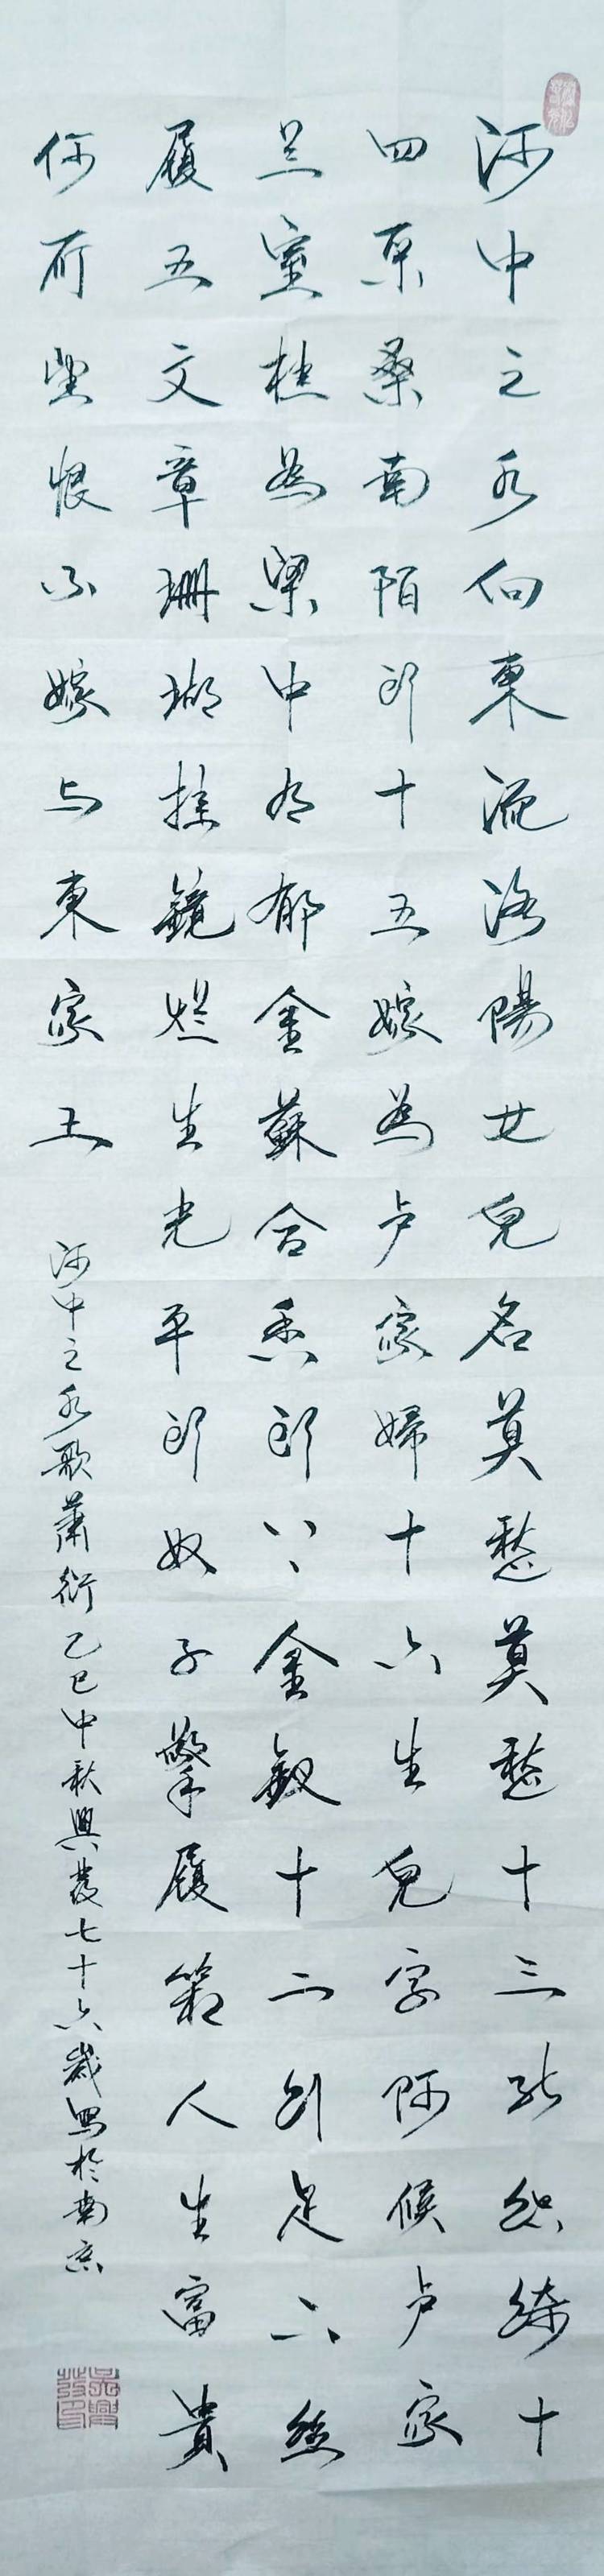 河中之水向東流洛陽女兒名莫愁莫愁十三能织绮十
四采桑南陌頭十五嫁為卢家婦十六生兒字阿候卢家
兰室桂為梁中有郁金蘇合香頭上金釵十二行足下丝
履五文章珊瑚挂鏡烂生光平頭奴子擎履箱人生富貴
何所望恨不嫁与東家王
河中之水歌蕭衍乙巳中秋興發七十六歲寫於南京
吴興發印